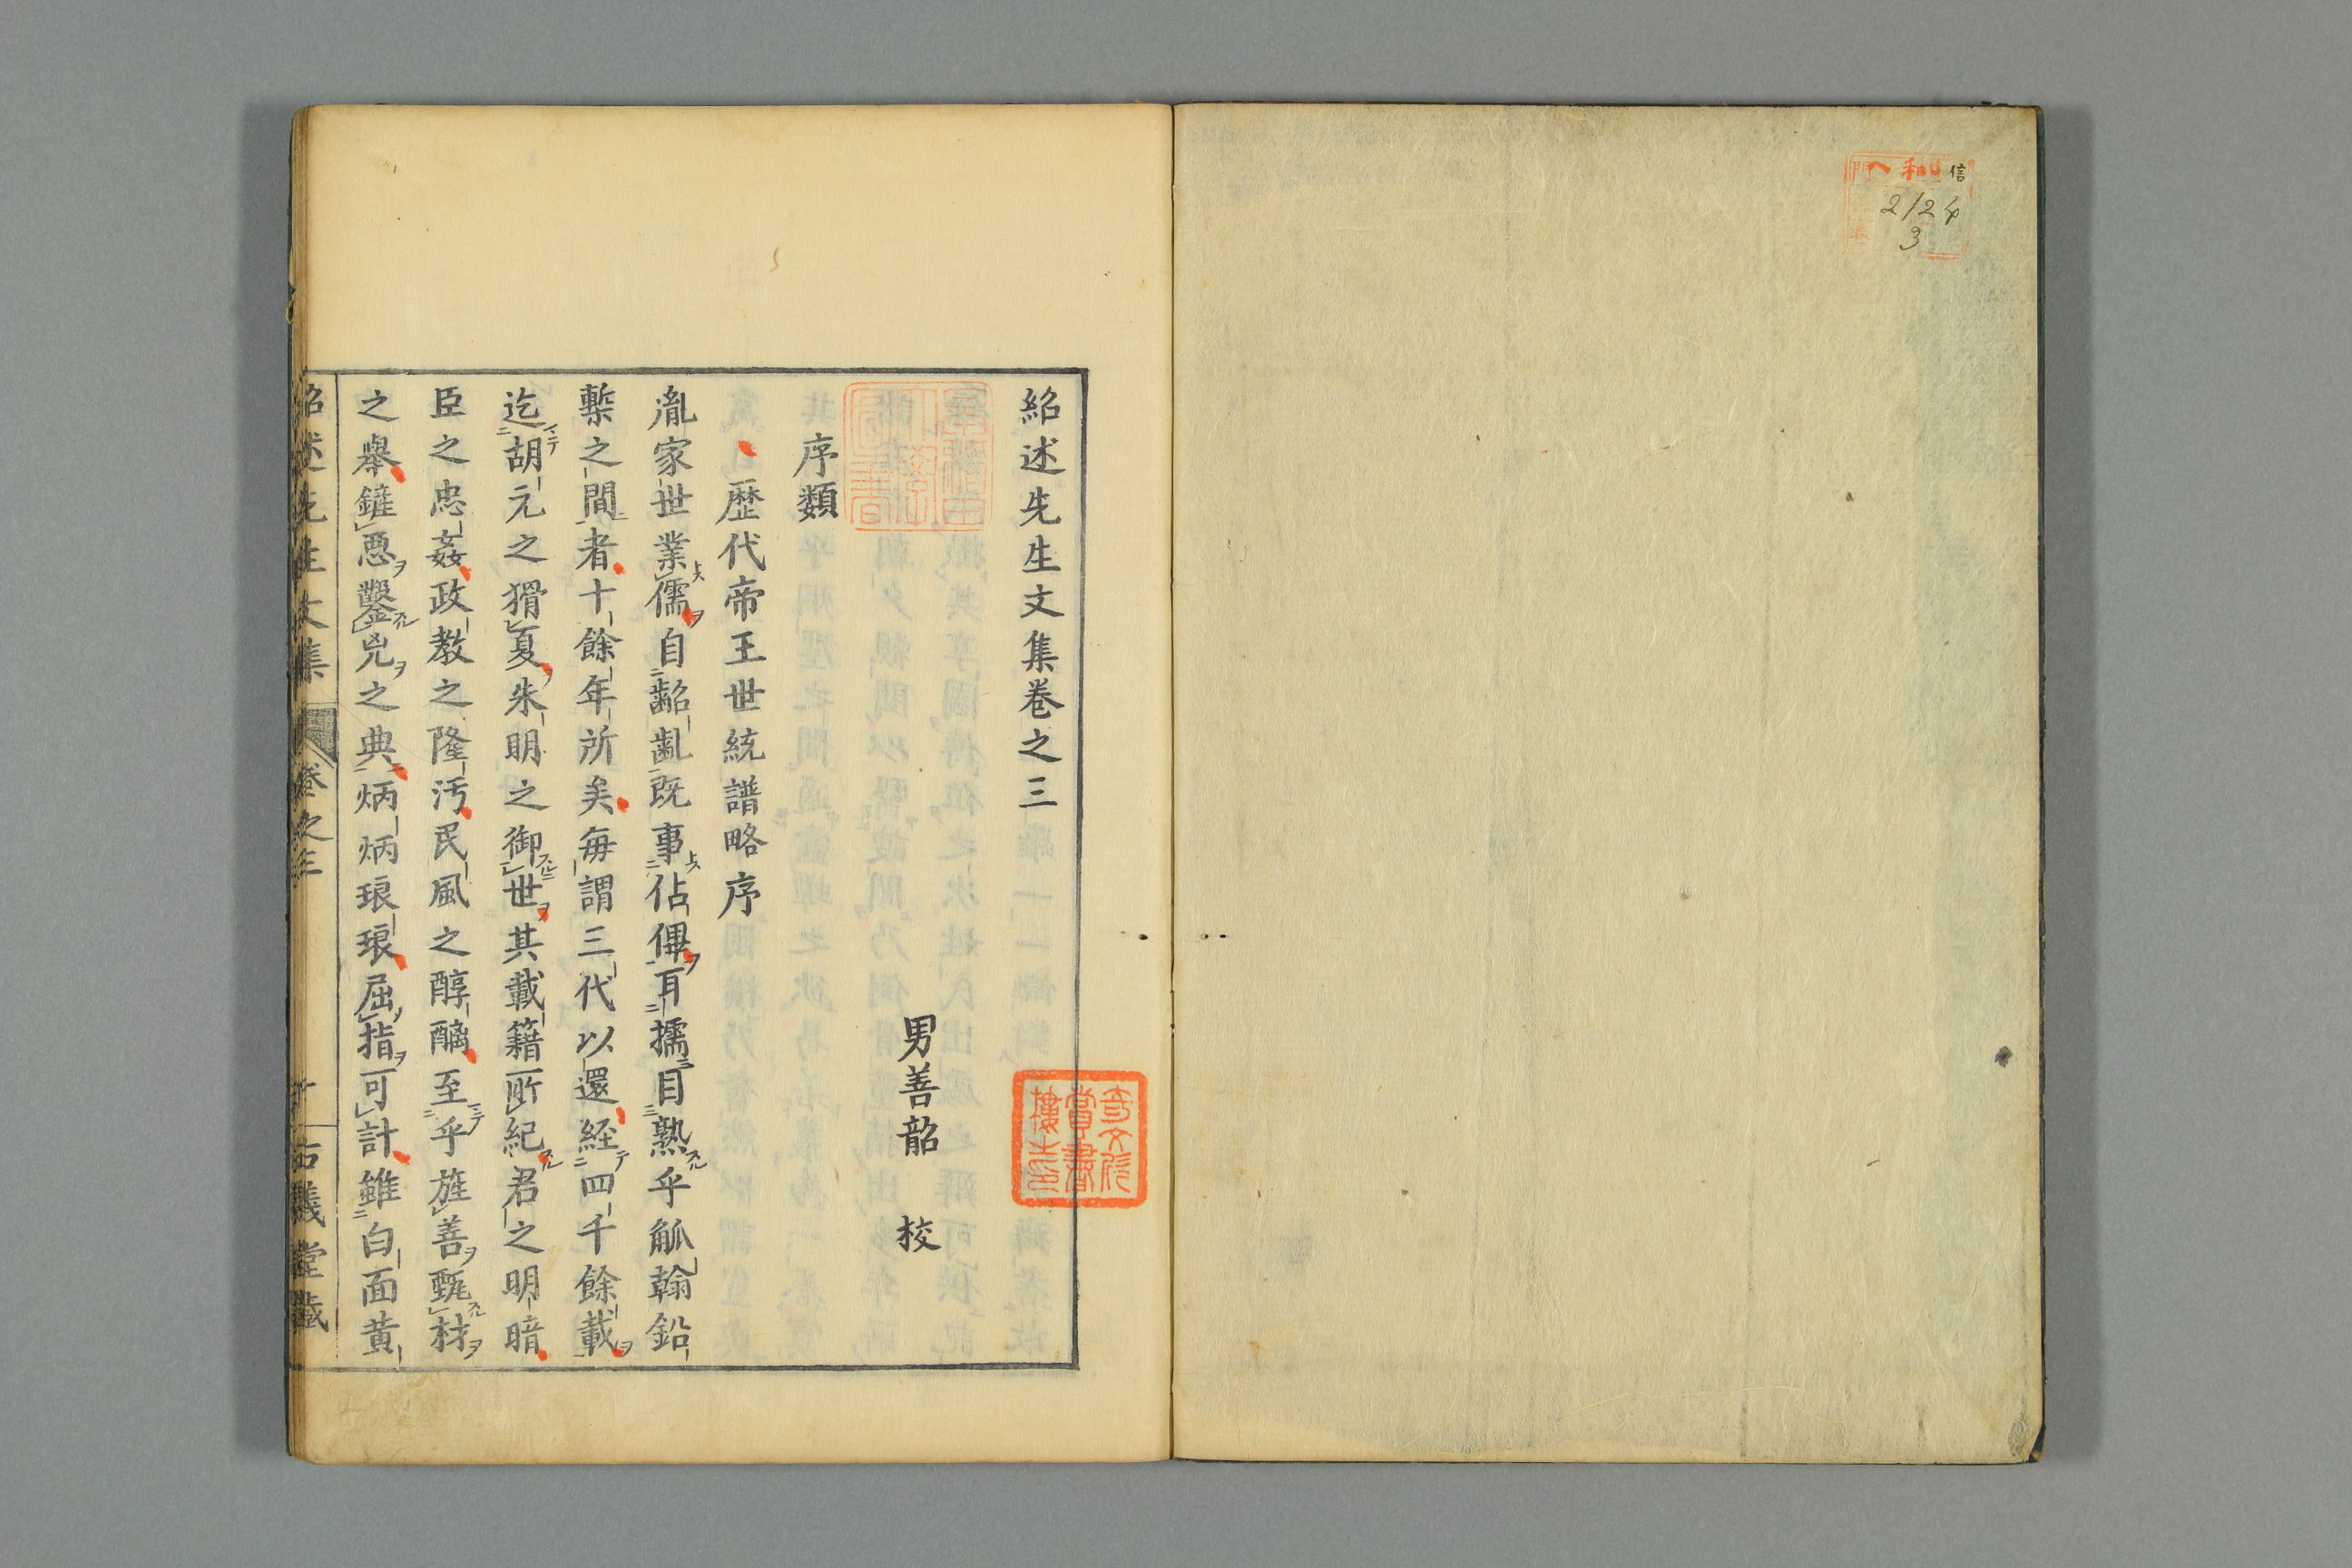 信
212
3
紹述先生文集卷之三
男善韶 校
序類
歴代帝王世統譜略序
胤家世業儒自齠齔既事佔俾耳擩目熟乎觚翰鉛
槧之間者十餘年所矣毎謂三代以還経四千餘載
迄胡元之猾夏朱明之御世其載籍所紀君之明暗
臣之忠姦政教之隆汚民風之醇醨至乎旌善甄材
之舉鏟悪鑿兇之典炳炳琅琅屈指可計雖白面黄
紹述先生文集 卷之三 古義堂藏